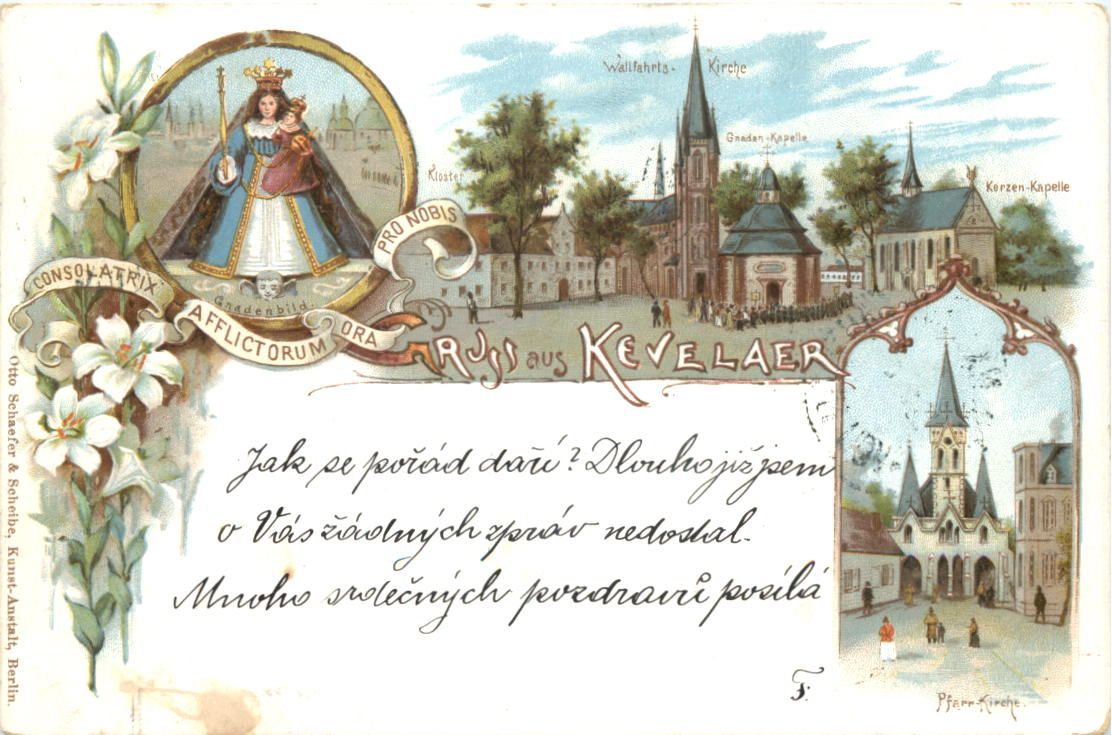 Wallfahrts-Kirche
Gnaden-Kapelle
Kloster
Kerzen-Kapelle
CONSOLATRIX
AFFLICTORUM
ORA
PRO NOBIS
Gnadenbild.
GRUSS aus KEVELAER
Jak se pořád daří? Dlouho již jsem
o Vás žádných zpráv nedostal.
Mnoho srdečných pozdravů posílá
F.
Pfarr-Kirche.
Otto Schaefer & Scheibe, Kunst-Anstalt, Berlin.